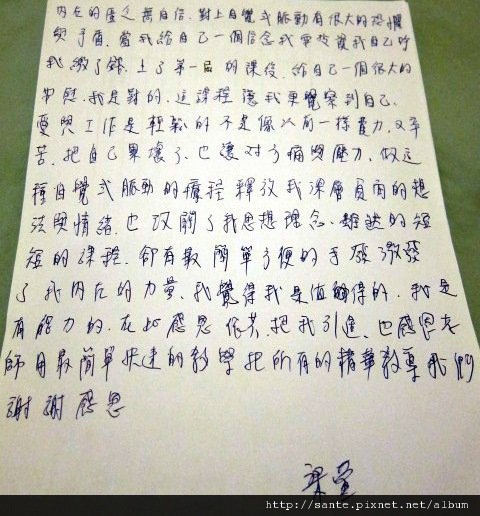 內在的匱乏與自信，對上自覺式脈動有很大的恐懼
與矛盾，當我給自己一個信念我要改變我自己时
我繳了錢，上了第一區的課後，給自己一個很大的
安慰，我是對的，這課程讓我更覺察到自己，
愛與工作是輕鬆的不是像以前一樣費力，又辛
苦，把自己累壞了，也讓对了痛與壓力，做这
種自覺式脈動的療程釋放我深層負面的想
法與情緒，也改關了我思想理念，雖然的短
短的課程，卻有最簡單方便的手療激發
了我內在的力量，我覺得我是值得的，我是
有能力的，在此感恩依芸，把我引進，也感恩老
師用最簡單快速的教學把所有的精華教導我们
謝謝感恩
梁瑩
http://sante.pixnet.net/album